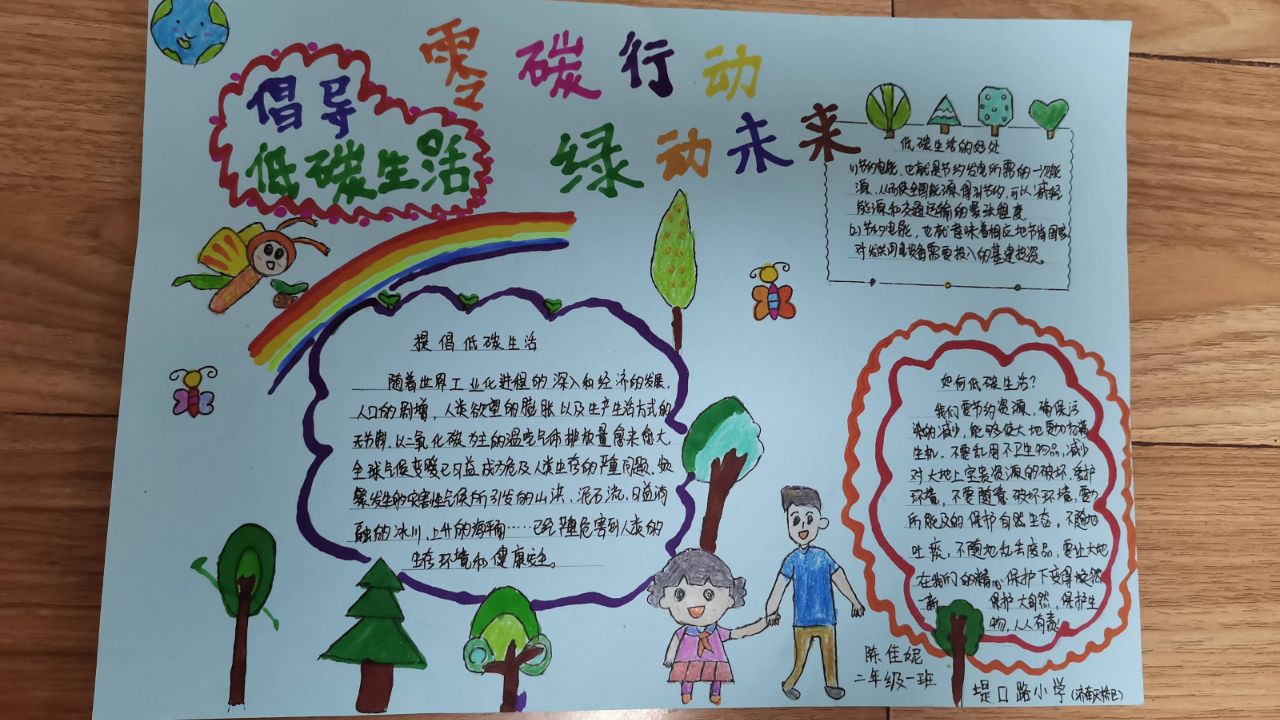 零碳行动
绿动未来
倡导
低碳生活
低碳生活的好处
1)节约电能,也就是节约发电所需的一次能
源,从而使全国能源得到节约,可以减轻
能源和交通运输的紧张程度
2)节约电能,也就意味着相应地节省国家
对发供用电设备需要投入的基建投资。
提倡低碳生活
随着世界工业化进程的深入和经济的发展,
人口的剧增,人类欲望的膨胀以及生产生活方式的
无节制,以二氧化碳为主的温室气体排放量愈来愈大,
全球气候变暖已日益成为危及人类生存的严重问题,频
繁发生的灾害性气候所引发的山洪、泥石流,日益消
融的冰川,上升的海平面……已严重危害到人类的
生态环境和健康安全。
如何低碳生活?
我们要节约资源,确保污
染的减少,能够使大地更加充满
生机。不要乱用不卫生物品,减少
对大地上宝贵资源的破坏,爱护
环境,不要随意破坏环境,力
所能及的保护自然生态,不随地
吐痰,不随地乱丢废品,要让大地
在我们的精心保护下变得焕然
一新 保护大自然,保护生
物,人人有责
陈佳妮
二年级一班
堤口路小学